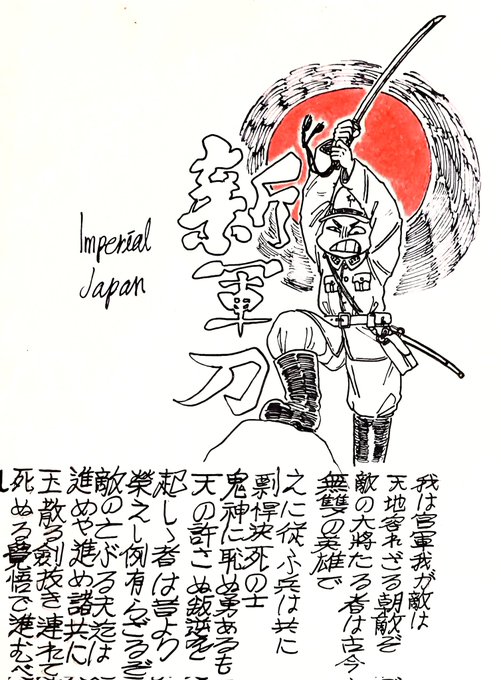 Imperial
Japan
新軍刀
我は官軍我が敵は
天地容れざる朝敵ぞ
敵の大将たる者は古今
無雙の英雄で
之に従ふ兵は共に
剽悍決死の士
鬼神に恥ぬ勇あるも
天の許さぬ叛逆を
起しゝ者は昔より
榮えし例有らざるぞ
敵の亡ぶる夫迄は
進めや進め諸共に
玉散る劍抜き連れて
死ぬる覺悟で進むべ